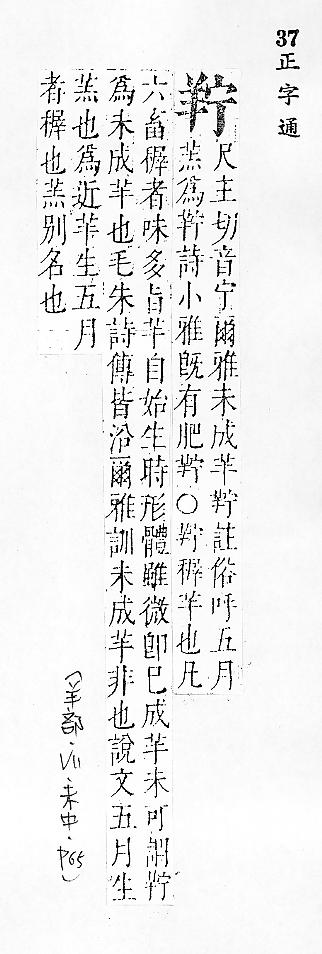 37
正字通
羜
尺主切音宁爾雅未成羊羜註俗呼五月
羔為羜詩小雅旣有肥羜○羜穉羊也凡
六畜穉者味多旨羊自始生時形體雖微卽已成羊未可謂羜
為未成羊也毛朱詩傳皆沿爾雅訓未成羊非也說文五月生
羔也為近羊生五月
者穉也羔別名也
(羊部·VII·未中·P65)